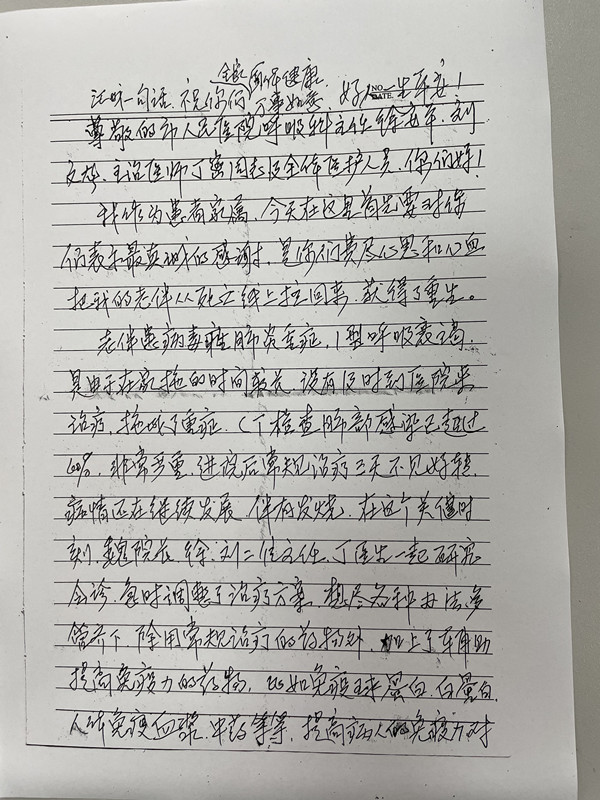 全家 身体健康
汇成一句话、祝你们 万事如意、好人一生平安!
NO.
DATE.
尊敬的市人民医院呼吸科主任徐安军、刘
文、主治医师丁同志及全体医护人员、你们好!
我作为患者家属、今天在这里首先要对你
们表示最真诚的感谢、是你们费尽心思和心血
把我的老伴从死亡线上拉回来、获得了重生。
老伴患病毒性肺炎重症、1型呼吸衰竭、
是由于在家拖的时间较长、没有及时到医院来
治疗、拖成了重症、CT检查肺部感染已超过
60%、非常严重、进院后常规治疗三天不见好转、
病情还在继续发展、伴有发烧、在这个关键时
刻、魏院长、徐、刘二位主任、丁医生一起研究
会诊、急时调整了治疗方案、想尽各种办法多
管齐下、除用常规治疗的药物外、加上了辅助
提高免疫力的药物、比如免疫球蛋白、白蛋白、
人体免疫血浆、中药等等、提高病人的免疫力对